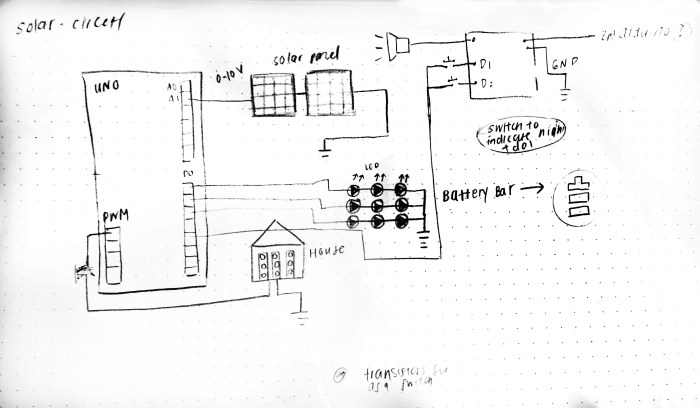 solar - circuit
UNO
A0
A1
0-10V
solar panel
D1
D2
GND
switch to
indicate night
LED
Battery Bar →
PWM
House
transistors for
as a switch